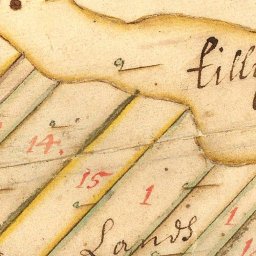 till
14.
15
1
1
1
Lands